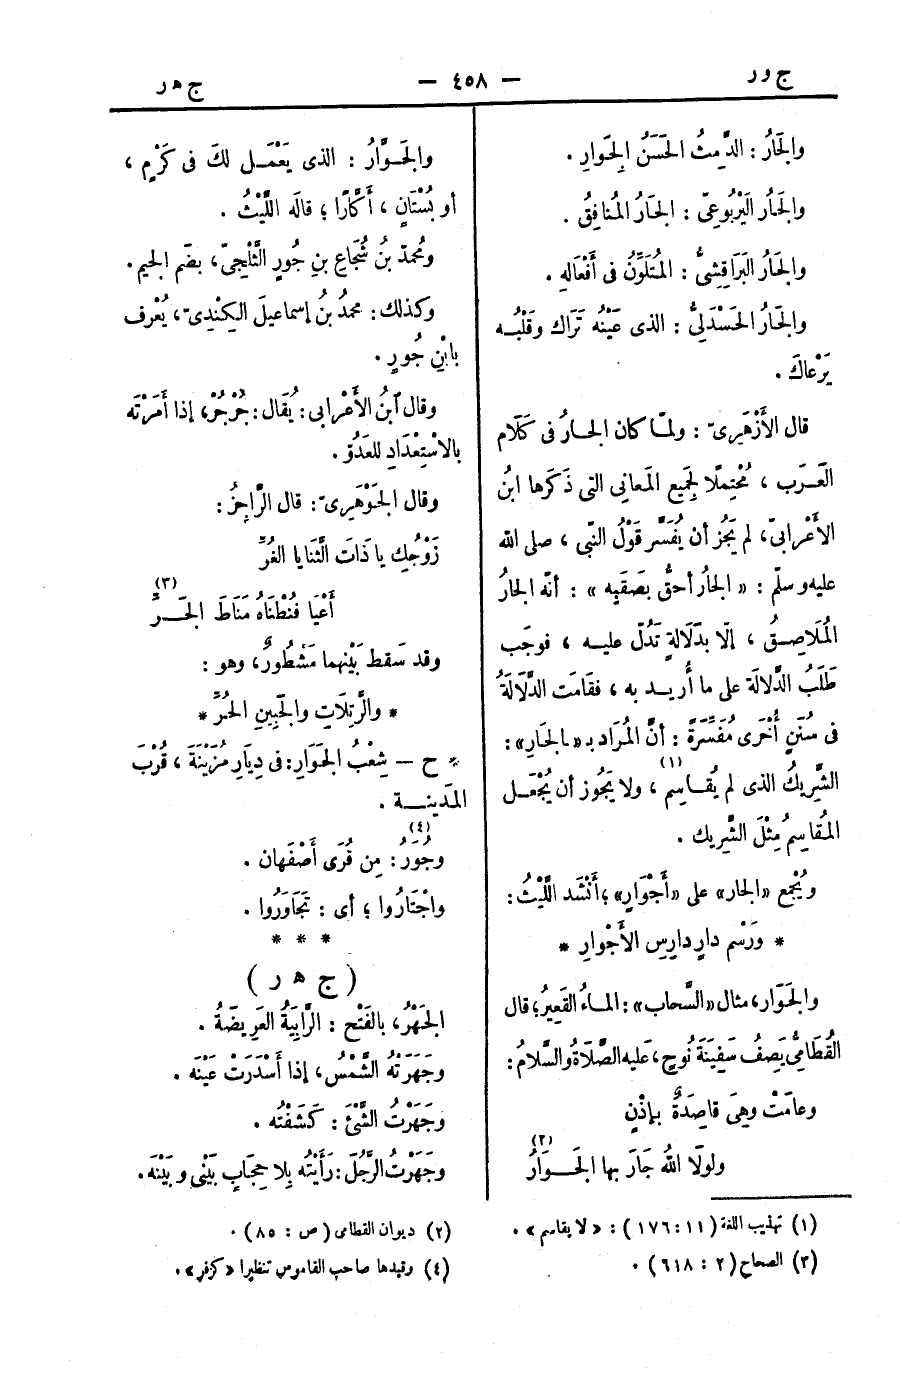 ج ور
— ٤٥٨ —
ج ه ر
والجَارُ : الدَّمِثُ الحَسَنُ الجِوارِ .
والجَارُ اليَرْبُوعىّ : الجَارُ المُنافِقُ .
والجَارُ البَرَاقِشِىُّ : المُتَلَوِّنُ فى أَفْعَالهِ .
والجَارُ الحَسْدَلِىُّ : الذى عَيْنُه تَرَاك وقَلْبُه
يَرْعاكَ .
قال الأَزْهَرِىّ : ولمّا كان الجارُ فى كَلَام
العَرَب ، مُحْتِملًا لجَمِيع المَعانِى التى ذَكَرها ابنُ
الأَعْرابىّ، لم يَجُز أن يُفَسَّر قَوْلُ النّبى ، صلى الله
عليه وسلّم : « الجارُ أحقُّ بصَقَبِه » : أنّه الجارُ
المُلَاصِقُ ، إلّا بدّلَالةٍ تَدُلّ عليه ، فوجَب
طَلَبُ الدَّلالَة على ما أُريد به ، فقَامَت الدَّلَالَةُ
فى سُنَنٍ أُخْرَى مُفَسَّرةً : أنَّ المُرَاد بـ «الجَارِ» :
الشَّرِيكُ الذى لم يُقَاسِم (١) ، ولا يَجُوز أن يُجْعَل
المُقاسِمُ مِثْلَ الشَّرِيك .
ويُجْمع «الجار» على «أَجْوَارٍ»؛ أنْشَد اللَّيْثُ :
* ورَسْم دارٍ دارِسِ الأَجْوارِ *
والجَوَار، مثال «السَّحاب» : الماءُ القَعِيرُ؛ قال
القُطَامِىُّ يَصِفُ سَفِينَةَ نُوحٍ، عَليه الصَّلَاةُ والسَّلامُ :
وعامَتْ وهىَ قاصِدَةٌ بإذْنٍ
ولولَا اللهُ جَارَ بها الجَوَارُ (٢)
والجَوَّارُ : الذى يَعْمَل لكَ فى كَرْمٍ ،
أو بُسْتَانٍ ، أَكَّارًا ؛ قالَه اللَّيْثُ .
ومُحمدّ بنُ شُجَاعِ بنِ جُورٍ الثَّلْجِىّ، بضَم الجيم .
وكذلك : محمدُ بنُ إسماعيلَ الكِنْدِىّ ، يُعْرف
بابْنِ جُورٍ .
وقال ابنُ الأَعْرابى : يُقَال : جُرْجُرْ، إذا أَمَرْتَه
بالاسْتِعْدَادِ للعَدُوّ .
وقال الجَوْهَرِىّ : قال الرَّاجِزُ :
زَوْجُكِ يا ذَاتَ الثَّنايا الغُرِّ
أَعْيا فَنُطْنَاهُ مَنَاطَ الجَرِّ (٣)
وقد سَقط بَيْنهما مَشْطُورٌ، وهو :
* والرَّتِلَاتِ والجَبِينِ الحُرِّ *
* ح — شِعْبُ الجَوَارِ : فى دِيَارِ مُزَيْنَةَ ، قُرْبَ
المَدَينة .
وجُوَرُ (٤) : مِن قُرَى أَصْفَهان .
واجْتَارُوا ؛ أى : تَجَاوَرُوا .
* * *
( ج ه ر )
الجَهْرُ ، بالفَتْح : الرَّابِيَةُ العَرِيضَةُ .
وجَهَرَتْهُ الشَّمْسُ ، إذا أَسْدَرَتْ عَيْنَه .
وجَهَرْتُ الشَّئَ : كَشَفْتُه .
وجَهَرْتُ الرَّجُلَ : رَأَيْتُه بِلا حِجَابٍ بَيْنى وبَيْنَه .
(١) تهذيب اللغة (١١ : ١٧٦) : « لا يقاسم » .
(٢) ديوان القطامى (ص : ٨٥) .
(٣) الصحاح (٢ : ٦١٨) .
(٤) وقيدها صاحب القاموس تنظيرا «كزفر» .